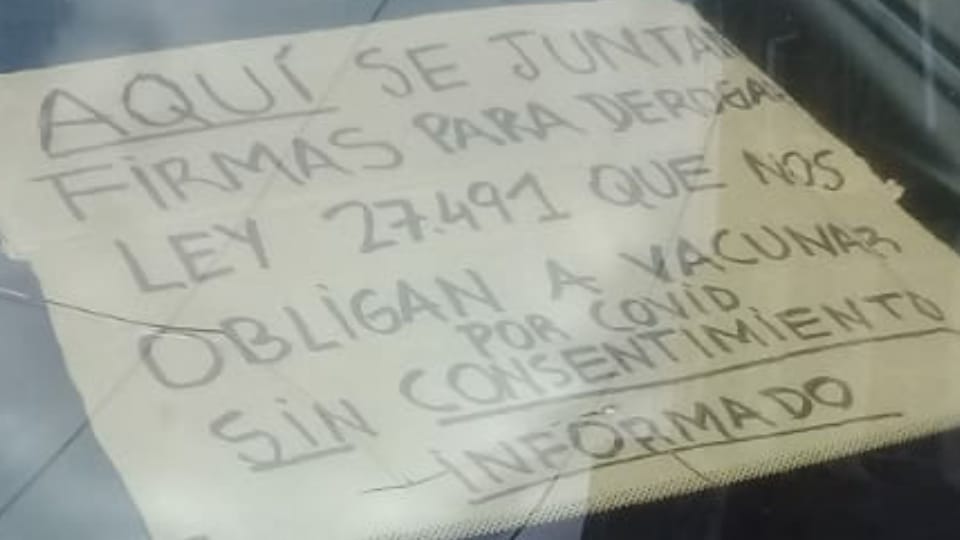 AQUÍ SE JUNTAN
FIRMAS PARA DEROGAR
LEY 27.491 QUE NOS
OBLIGAN A VACUNAR
POR COVID
SIN CONSENTIMIENTO
INFORMADO